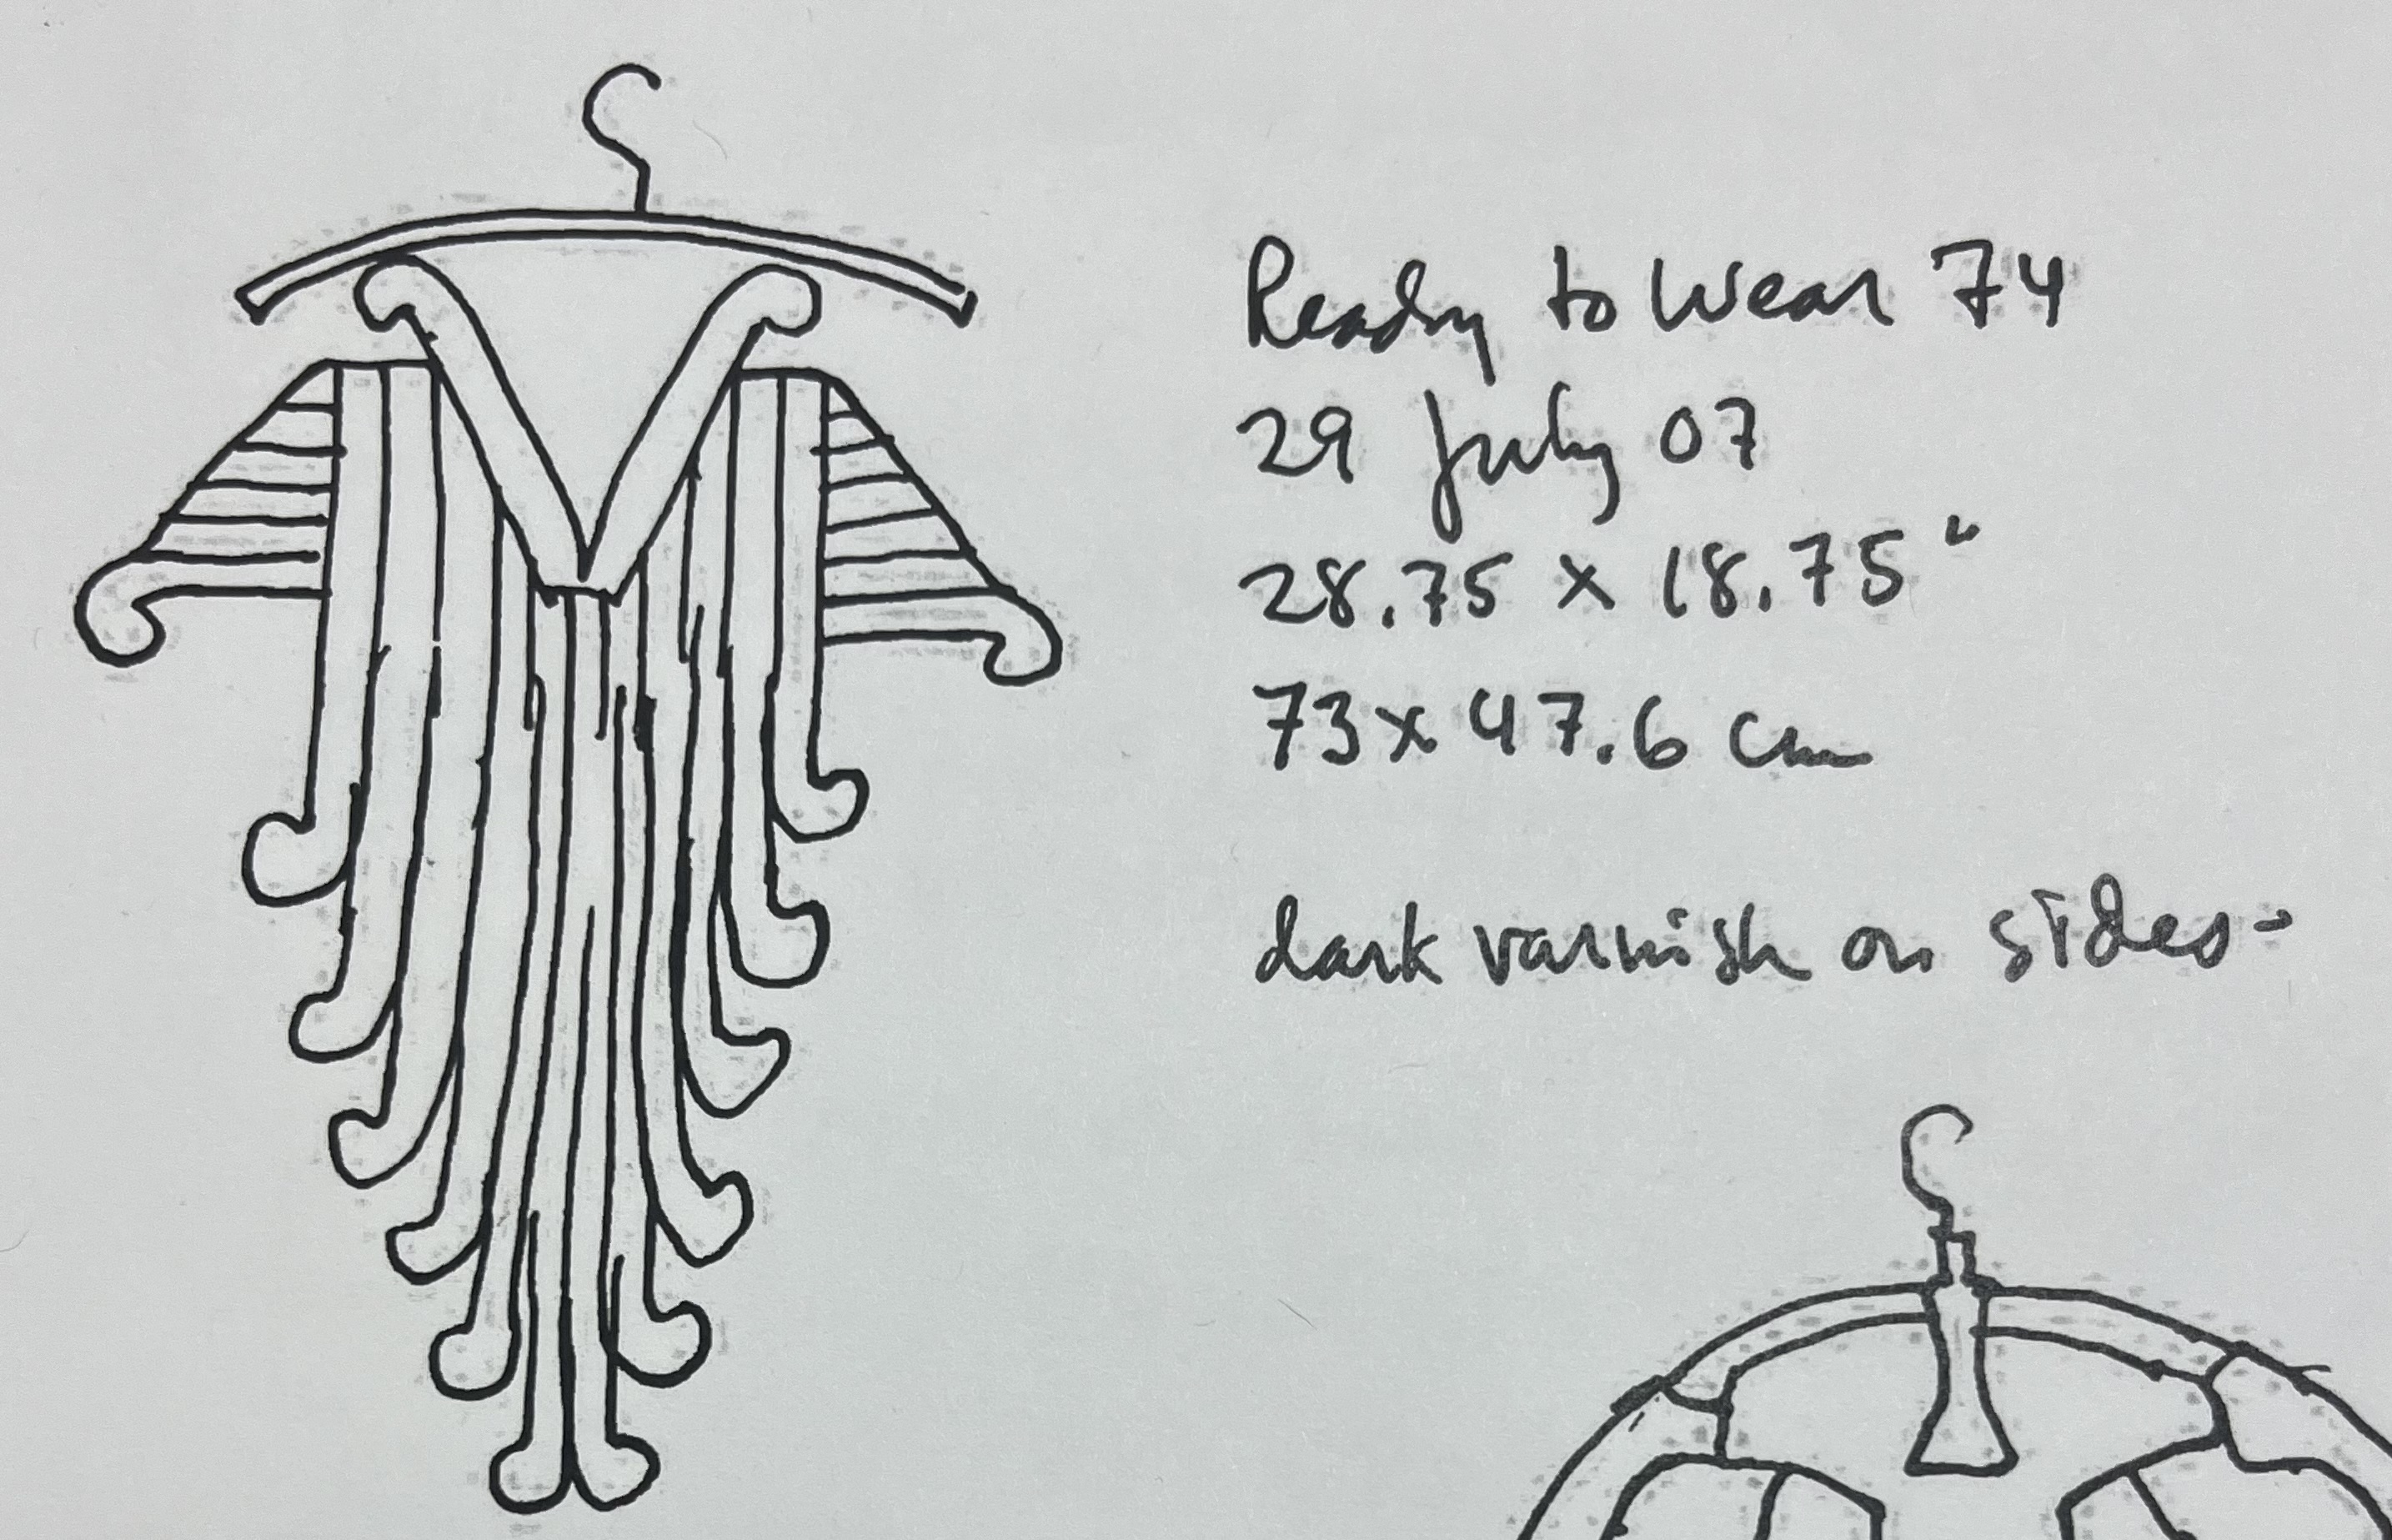 Ready to Wear 74
29 July 07
28.75 x 18.75"
73 x 47.6 cm
dark varnish on sides-